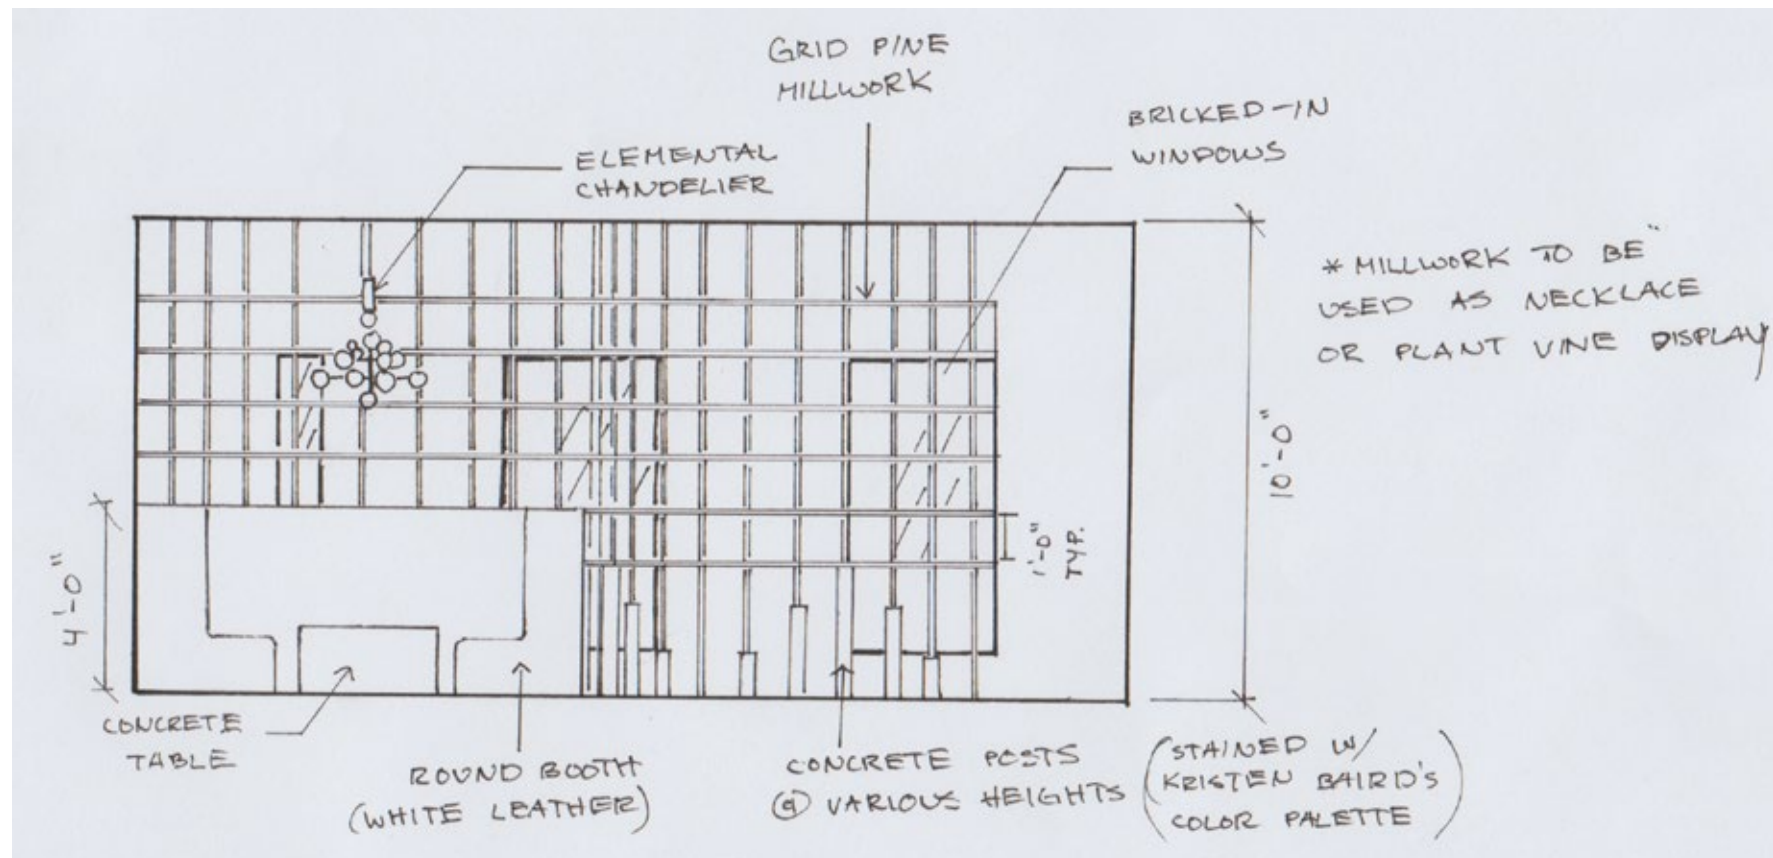 GRID PINE
MILLWORK
BRICKED-IN
WINDOWS
ELEMENTAL
CHANDELIER
* MILLWORK TO BE
USED AS NECKLACE
OR PLANT VINE DISPLAY
10'-0"
4'-0"
1'-0"
TYP.
CONCRETE
TABLE
ROUND BOOTH
(WHITE LEATHER)
CONCRETE POSTS
@ VARIOUS HEIGHTS
(STAINED W/
KRISTEN BAIRD'S
COLOR PALETTE)